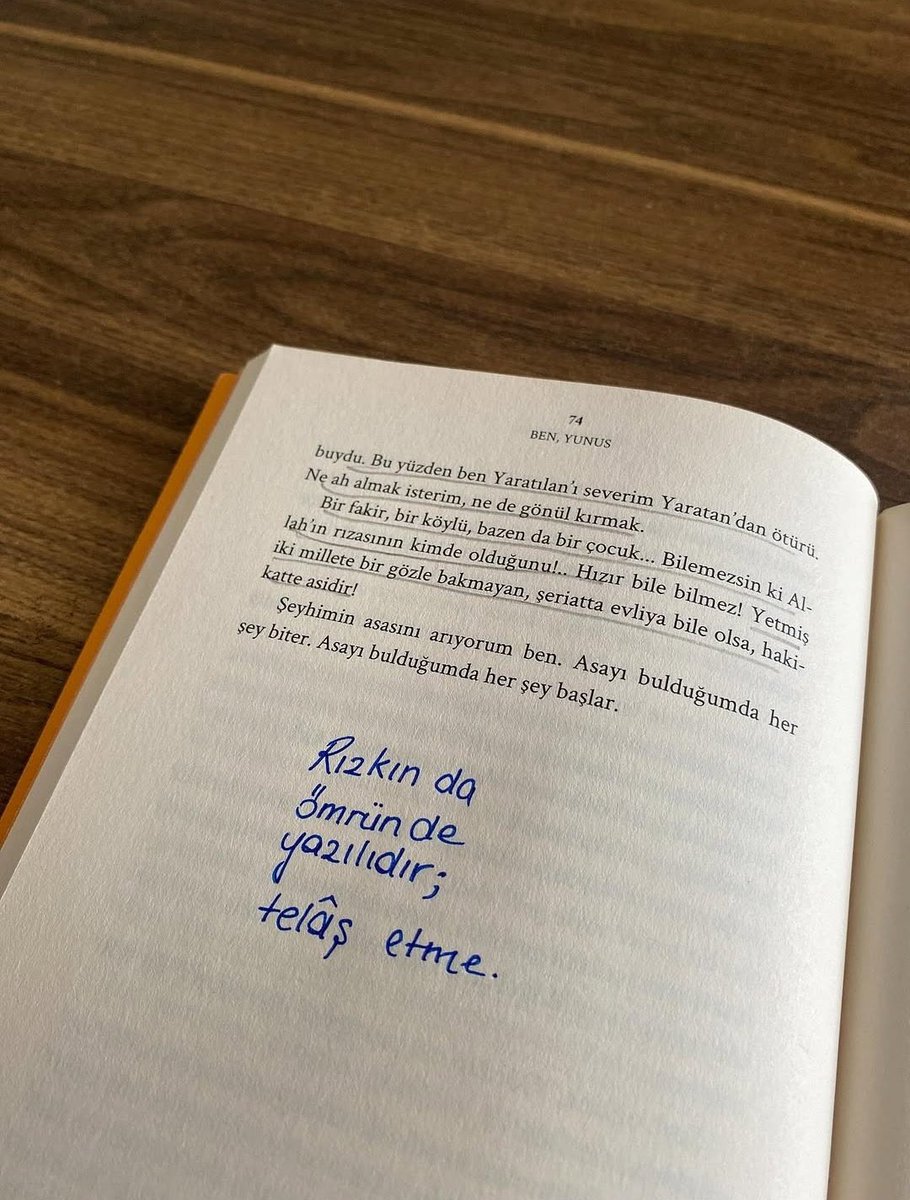 74
BEN, YUNUS
buydu. Bu yüzden ben Yaratılan'ı severim Yaratan'dan ötürü.
Ne ah almak isterim, ne de gönül kırmak.
Bir fakir, bir köylü, bazen da bir çocuk... Bilemezsin ki Al-
lah'ın rızasının kimde olduğunu!.. Hızır bile bilmez! Yetmiş
iki millete bir gözle bakmayan, şeriatta evliya bile olsa, haki-
katte asidir!
Şeyhimin asasını arıyorum ben. Asayı bulduğumda her
şey biter. Asayı bulduğumda her şey başlar.
Rızkın da
ömrün de
yazılıdır;
telâş etme.